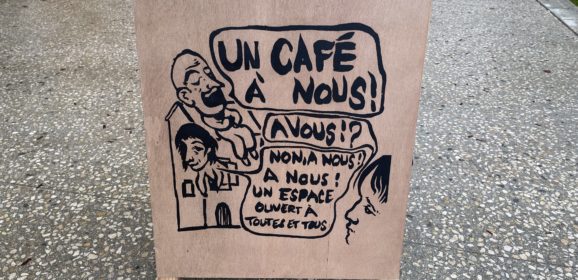 UN CAFÉ
À NOUS!
A VOUS!?
NON, A NOUS!
A NOUS!
UN ESPACE
OUVERT À
TOUTES ET TOUS